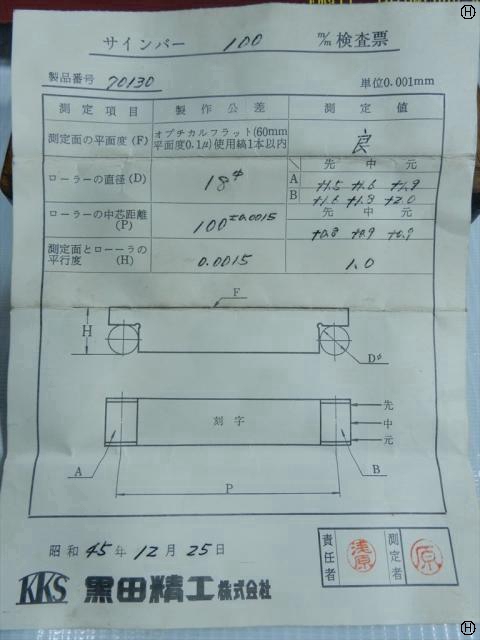 サインバー 100 m/m 検査票
製品番号 70130
単位0.001mm
測定項目 製作公差 測定値
測定面の平面度(F) オプチカルフラット(60mm 平面度0.1μ)使用縞1本以内 良
ローラーの直径(D) 18φ
先 中 元
A +1.5 +1.6 +1.9
B +1.6 +1.9 +2.0
ローラーの中芯距離(P) 100±0.0015
先 中 元
+0.8 +0.9 +0.9
測定面とローラの平行度(H) 0.0015 1.0
F
H
Dφ
刻字
先
中
元
A
B
P
昭和45年12月25日
責任者 浅原 測定者 原
KKS 黒田精工株式会社
H
H